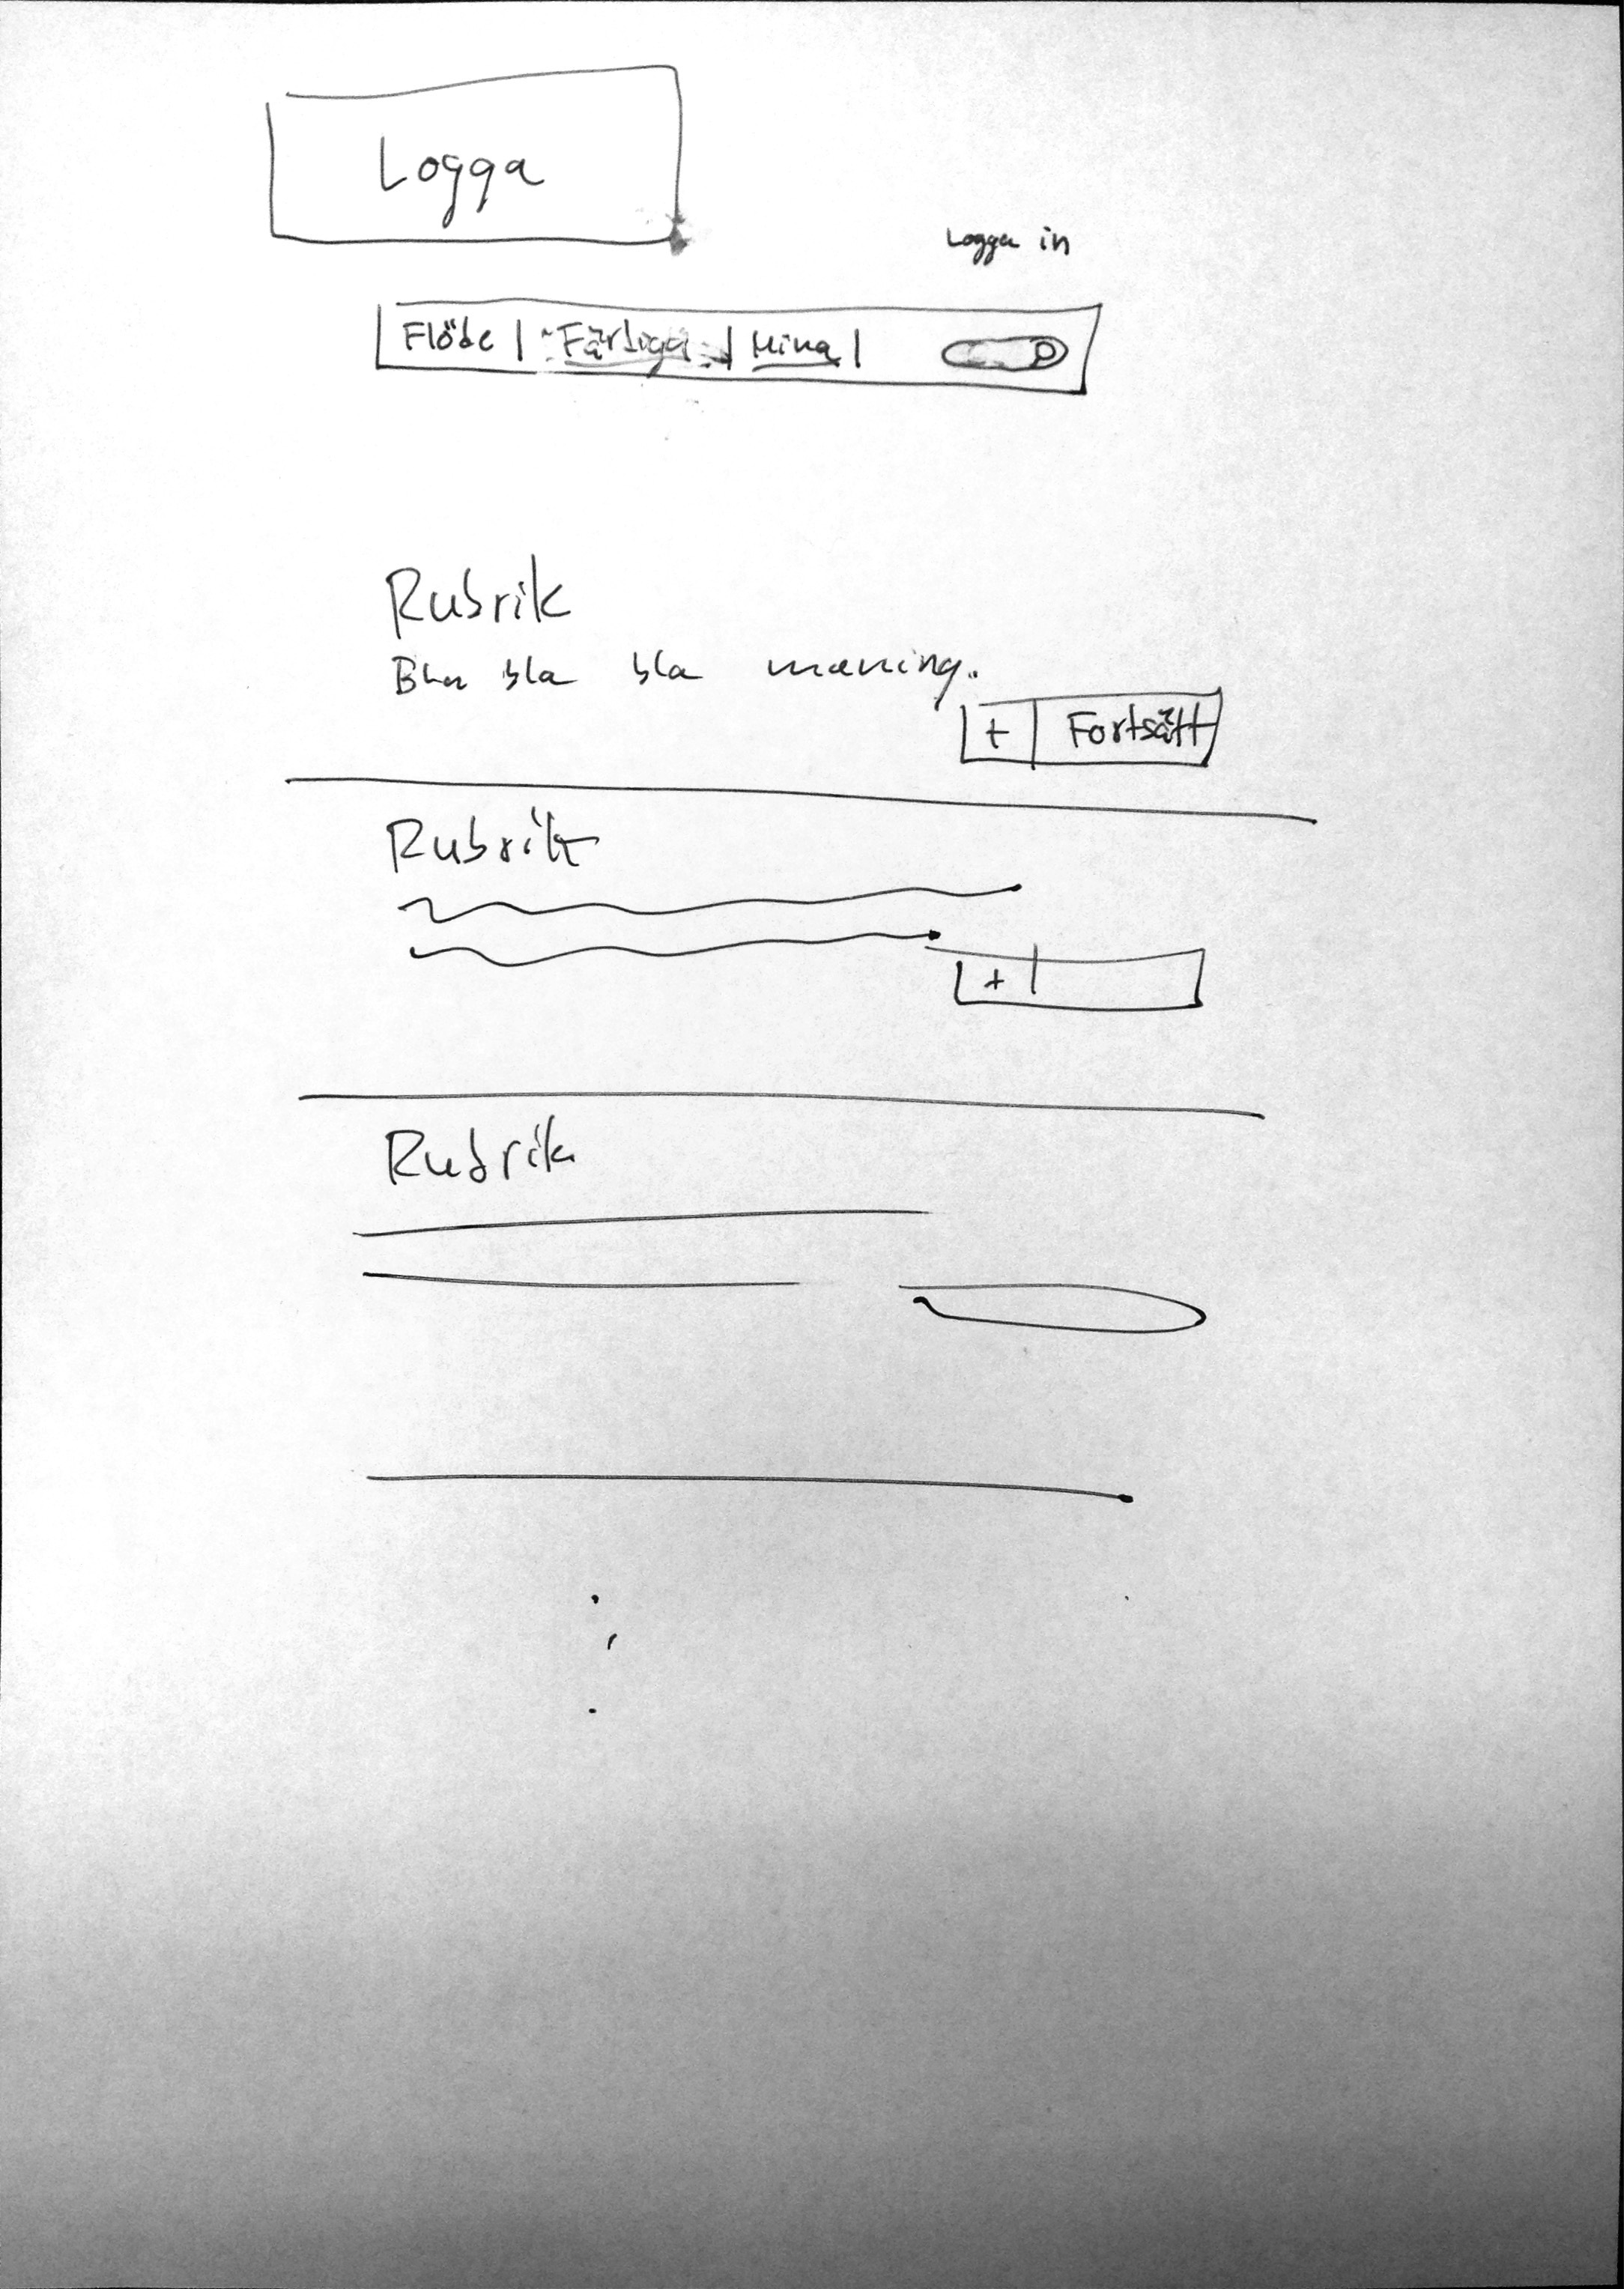 Logga
Logga in
Flöde | Färdiga | Mina |
Rubrik
Bla bla bla mening.
+ Fortsätt
Rubrik
+
Rubrik